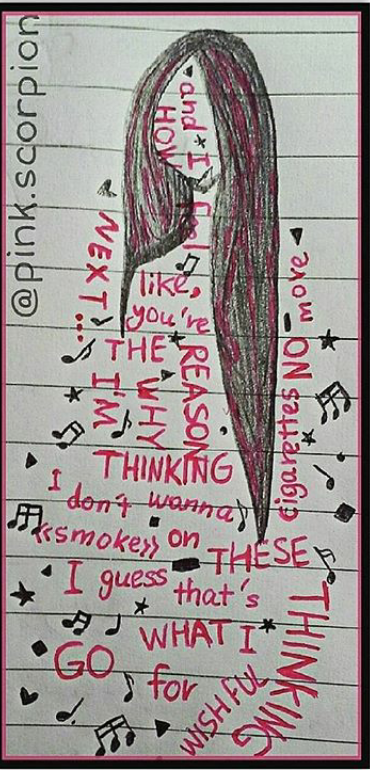 @pink.scorpion
and I
HOW
feel
NEXT...
like,
you're
THE
REASON
WHY
I'M
THINKING
I
don't wanna
«smoke» on
THESE
cigarettes NO move
I guess that's
WHAT I
GO
for
WISHFUL
THINKING